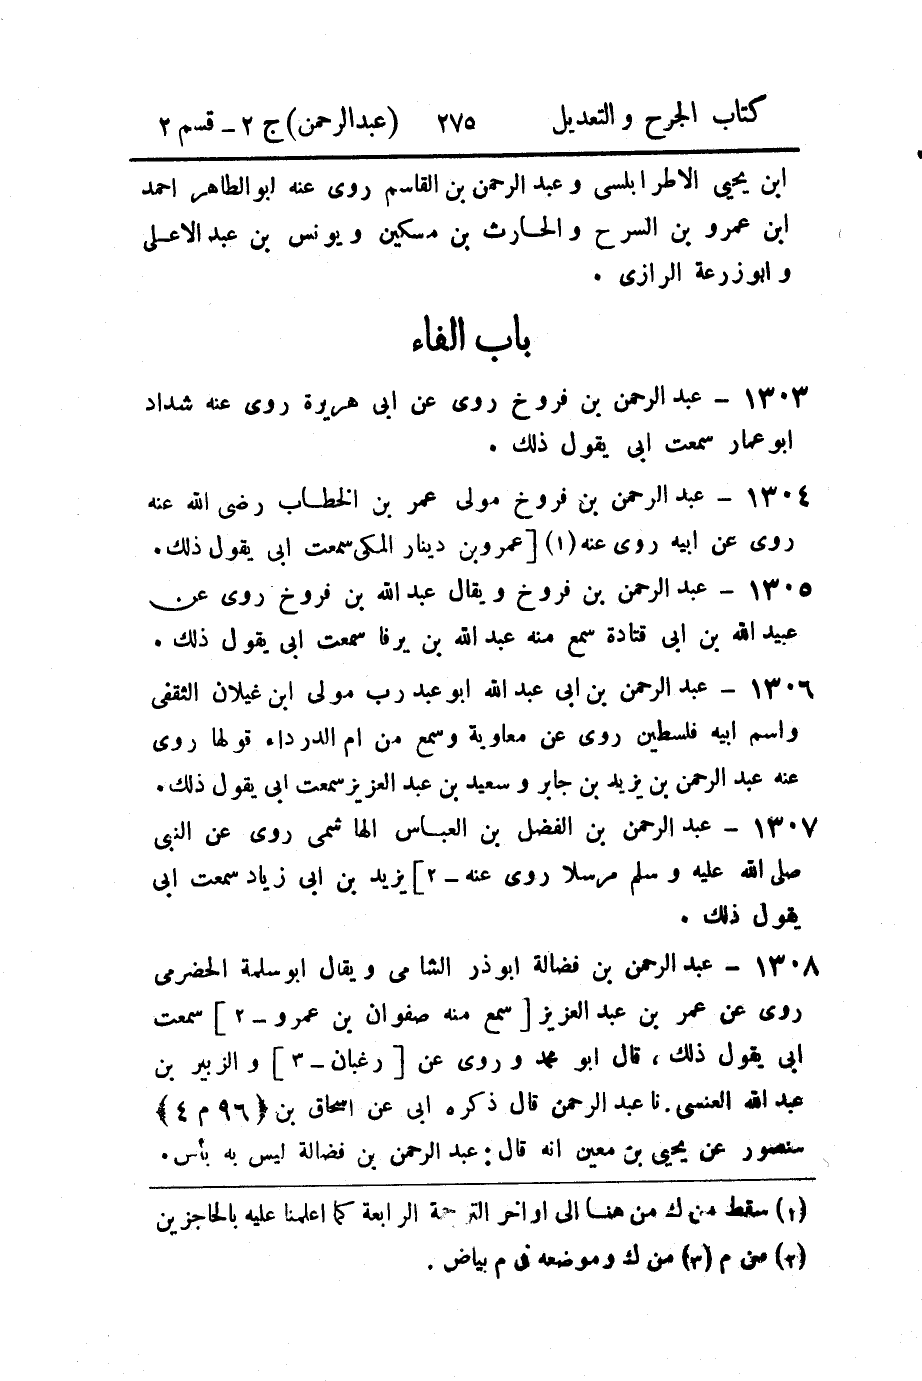 كتاب الجرح والتعديل ٢٧٥ (عبدالرحمن) ج ٢ - قسم ٢
ابن يحيى الاطرابلسى وعبد الرحمن بن القاسم روى عنه ابوالطاهر احمد
ابن عمرو بن السرح والحارث بن مسكين ويونس بن عبد الاعلى
وابوزرعة الرازى .
باب الفاء
١٣٠٣ - عبد الرحمن بن فروخ روى عن ابى هريرة روى عنه شداد
ابوعمار سمعت ابى يقول ذلك .
١٣٠٤ - عبد الرحمن بن فروخ مولى عمر بن الخطاب رضى الله عنه
روى عن ابيه روى عنه (١) [عمروبن دينار المكى سمعت ابى يقول ذلك.
١٣٠٥ - عبد الرحمن بن فروخ ويقال عبد الله بن فروخ روى عن
عبيد الله بن ابى قتادة سمع منه عبد الله بن يرفا سمعت ابى يقول ذلك .
١٣٠٦ - عبد الرحمن بن ابى عبد الله ابوعبدرب مولى ابن غيلان الثقفى
واسم ابيه فلسطين روى عن معاوية وسمع من ام الدرداء قولها روى
عنه عبد الرحمن بن يزيد بن جابر وسعيد بن عبد العزيز سمعت ابى يقول ذلك.
١٣٠٧ - عبد الرحمن بن الفضل بن العباس الهاشمى روى عن النبى
صلى الله عليه وسلم مرسلا روى عنه - ٢] يزيد بن ابى زياد سمعت ابى
يقول ذلك .
١٣٠٨ - عبد الرحمن بن فضالة ابوذر الشامى ويقال ابوسلمة الحضرمى
روى عن عمر بن عبد العزيز [سمع منه صفوان بن عمرو - ٢] سمعت
ابى يقول ذلك ، قال ابو محمد وروى عن [رغبان - ٣] والزبير بن
عبد الله العنسى . نا عبد الرحمن قال ذكره ابى عن اسحاق بن (٩٦ م ٤)
منصور عن يحيى بن معين انه قال: عبد الرحمن بن فضالة ليس به بأس .
(١) سقط من ك من هنا الى اواخر الترجمة الرابعة كما اعلمنا عليه بالحاجزين
(٢) من م (٣) من ك وموضعه فى م بياض .